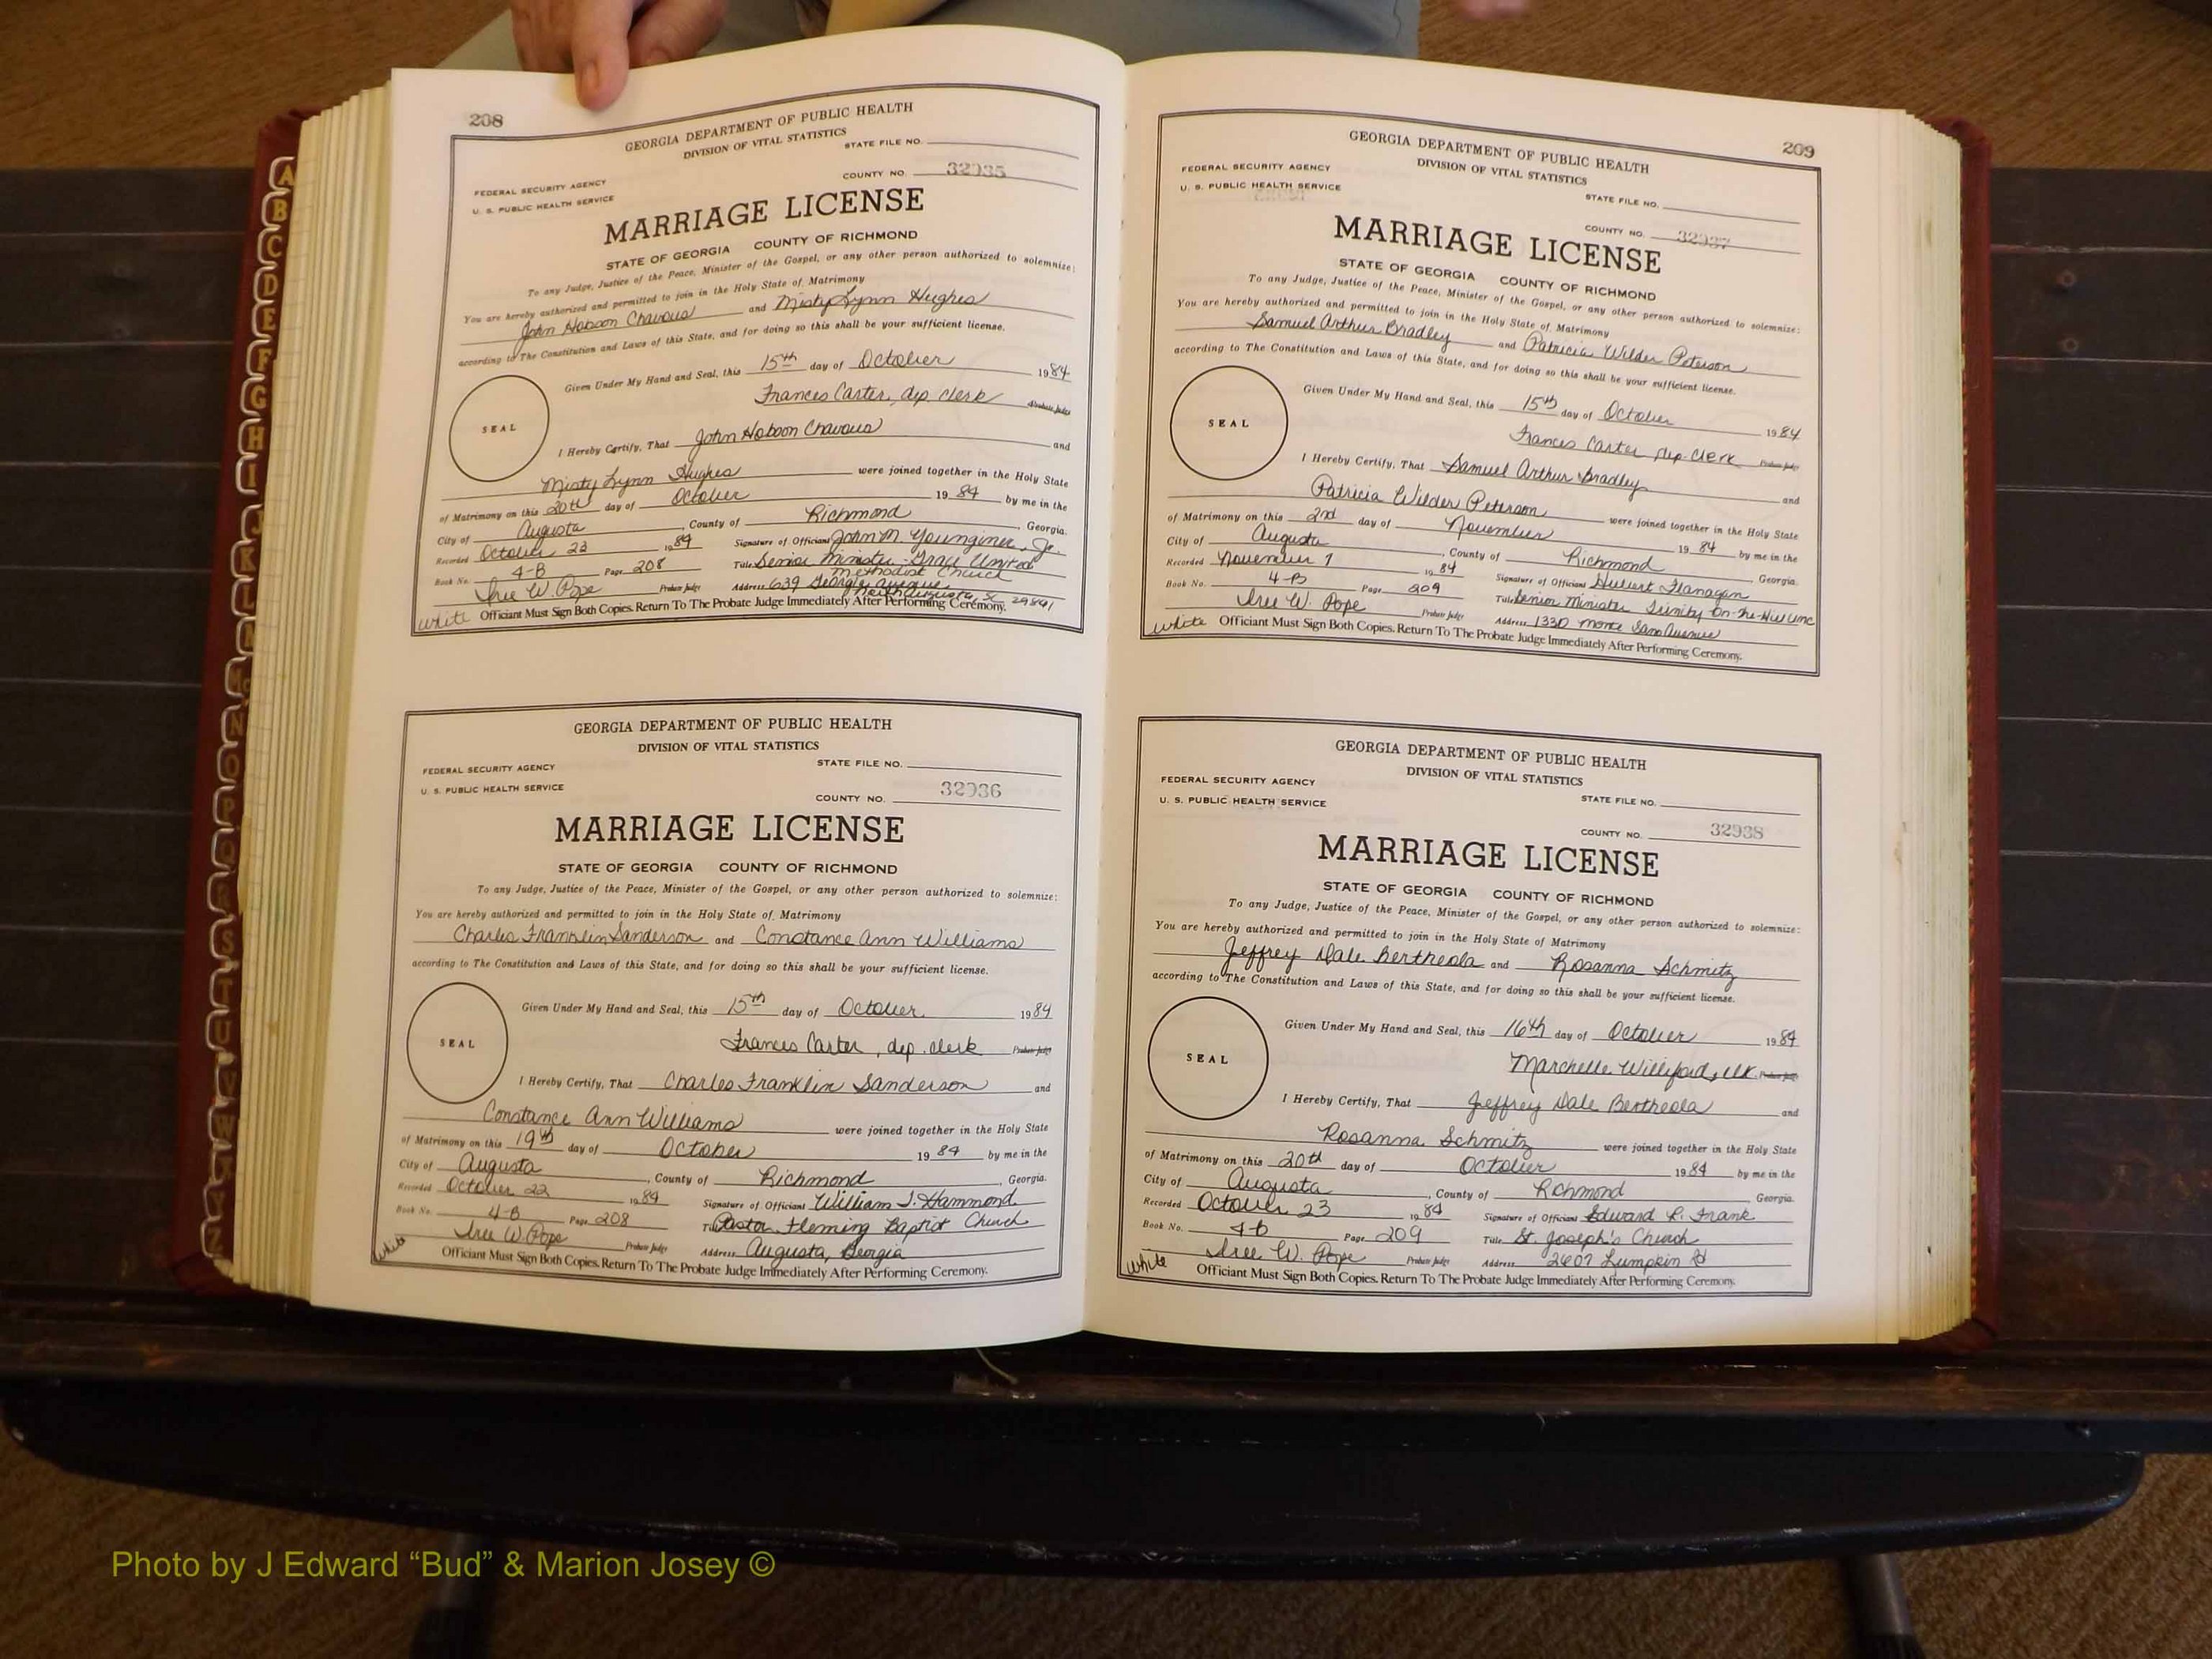 208
GEORGIA DEPARTMENT OF PUBLIC HEALTH
DIVISION OF VITAL STATISTICS
STATE FILE NO.
FEDERAL SECURITY AGENCY
U. S. PUBLIC HEALTH SERVICE
COUNTY NO. 32935
MARRIAGE LICENSE
STATE OF GEORGIA COUNTY OF RICHMOND
To any Judge, Justice of the Peace, Minister of the Gospel, or any other person authorized to solemnize:
You are hereby authorized and permitted to join in the Holy State of Matrimony
John Hobson Chavous and Misty Lynn Hughes
according to The Constitution and Laws of this State, and for doing so this shall be your sufficient license.
SEAL
Given Under My Hand and Seal, this 15th day of October 1984
Frances Carter, dep. clerk Probate Judge
I Hereby Certify, That John Hobson Chavous and
Misty Lynn Hughes were joined together in the Holy State
of Matrimony on this 20th day of October 1984 by me in the
City of Augusta, County of Richmond, Georgia.
Recorded October 23 1984 Signature of Officiant John M. Younginer, Jr.
Book No. 4-B Page 208 Title Senior Minister - Grace United Methodist Church
W. Pope Probate Judge Address 639 Georgia Avenue North Augusta, SC 29841
white Officiant Must Sign Both Copies. Return To The Probate Judge Immediately After Performing Ceremony.
GEORGIA DEPARTMENT OF PUBLIC HEALTH
DIVISION OF VITAL STATISTICS
FEDERAL SECURITY AGENCY STATE FILE NO.
U. S. PUBLIC HEALTH SERVICE
COUNTY NO. 32936
MARRIAGE LICENSE
STATE OF GEORGIA COUNTY OF RICHMOND
To any Judge, Justice of the Peace, Minister of the Gospel, or any other person authorized to solemnize:
You are hereby authorized and permitted to join in the Holy State of Matrimony
Charles Franklin Sanderson and Constance Ann Williams
according to The Constitution and Laws of this State, and for doing so this shall be your sufficient license.
SEAL
Given Under My Hand and Seal, this 15th day of October 1984
Frances Carter, dep. clerk Probate Judge
I Hereby Certify, That Charles Franklin Sanderson and
Constance Ann Williams were joined together in the Holy State
of Matrimony on this 19th day of October 1984 by me in the
City of Augusta, County of Richmond, Georgia.
Recorded October 22 1984 Signature of Officiant William J. Hammond
Book No. 4-B Page 208 Title Pastor, Fleming Baptist Church
W. Pope Probate Judge Address Augusta, Georgia
white Officiant Must Sign Both Copies. Return To The Probate Judge Immediately After Performing Ceremony.
209
GEORGIA DEPARTMENT OF PUBLIC HEALTH
DIVISION OF VITAL STATISTICS
FEDERAL SECURITY AGENCY
U. S. PUBLIC HEALTH SERVICE
STATE FILE NO.
COUNTY NO. 32937
MARRIAGE LICENSE
STATE OF GEORGIA COUNTY OF RICHMOND
To any Judge, Justice of the Peace, Minister of the Gospel, or any other person authorized to solemnize:
You are hereby authorized and permitted to join in the Holy State of Matrimony
Samuel Arthur Bradley and Patricia Wilder Peterson
according to The Constitution and Laws of this State, and for doing so this shall be your sufficient license.
SEAL
Given Under My Hand and Seal, this 15th day of October 1984
Frances Carter, dep. clerk Probate Judge
I Hereby Certify, That Samuel Arthur Bradley and
Patricia Wilder Peterson were joined together in the Holy State
of Matrimony on this 2nd day of November 1984 by me in the
City of Augusta, County of Richmond, Georgia.
Recorded November 7 1984 Signature of Officiant Hubert Flanagan
Book No. 4-B Page 209 Title Senior Minister Trinity-On-The-Hill UMC
W. Pope Probate Judge Address 1330 Monte Sano Avenue
white Officiant Must Sign Both Copies. Return To The Probate Judge Immediately After Performing Ceremony.
GEORGIA DEPARTMENT OF PUBLIC HEALTH
DIVISION OF VITAL STATISTICS
FEDERAL SECURITY AGENCY
U. S. PUBLIC HEALTH SERVICE
STATE FILE NO.
COUNTY NO. 32938
MARRIAGE LICENSE
STATE OF GEORGIA COUNTY OF RICHMOND
To any Judge, Justice of the Peace, Minister of the Gospel, or any other person authorized to solemnize:
You are hereby authorized and permitted to join in the Holy State of Matrimony
Jeffrey Dale Bertheola and Rosanna Schmitz
according to The Constitution and Laws of this State, and for doing so this shall be your sufficient license.
SEAL
Given Under My Hand and Seal, this 16th day of October 1984
Marchelle Williford, clk. Probate Judge
I Hereby Certify, That Jeffrey Dale Bertheola and
Rosanna Schmitz were joined together in the Holy State
of Matrimony on this 20th day of October 1984 by me in the
City of Augusta, County of Richmond Georgia.
Recorded October 23 1984 Signature of Officiant Edward R. Frank
Book No. 4-b Page 209 Title St. Joseph's Church
W. Pope Probate Judge Address 2607 Lumpkin Rd
white Officiant Must Sign Both Copies. Return To The Probate Judge Immediately After Performing Ceremony.
A
B
C
D
E
F
G
H
I
J
K
L
M
Mc
N
O
P
Q
R
S
T
U
V
W
X
Y
Z
Photo by J Edward “Bud” & Marion Josey ©